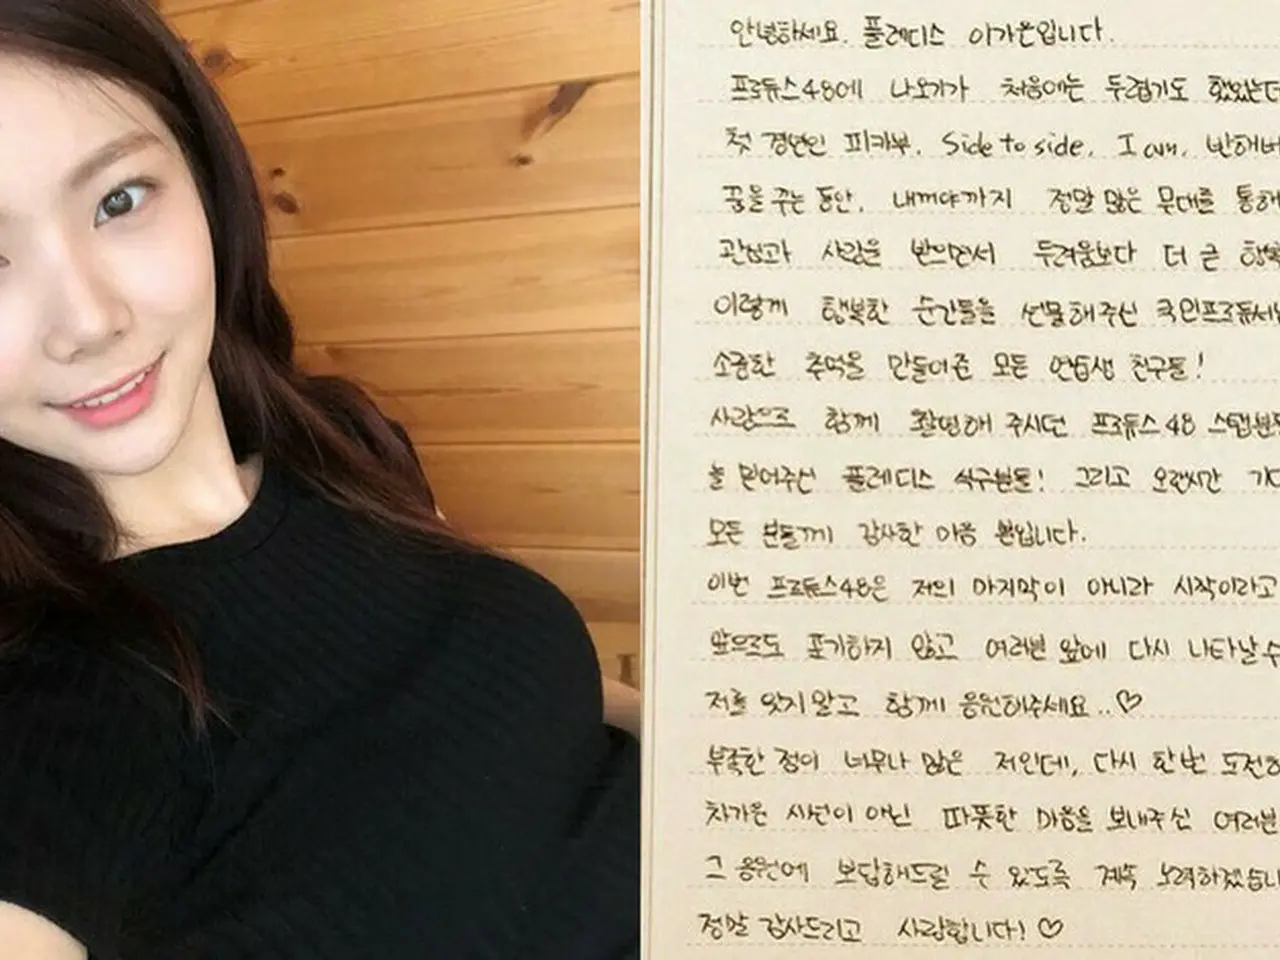 안녕하세요. 플레디스 이가은입니다.
프로듀스48에 나오기가 처음에는 두렵기도 했었는데
첫 경연인 피카부, Side to side, I am, 반해버
꿈을 꾸는 동안, 내꺼야까지 정말 많은 무대를 통해
관심과 사랑을 받으면서 두려움보다 더 큰 행복
이렇게 행복한 순간들을 선물해주신 국민프로듀서님
소중한 추억을 만들어준 모든 연습생 친구들!
사랑으로 함께 촬영해 주시던 프로듀스48 스탭분들
늘 믿어주신 플레디스 식구분들! 그리고 오랜시간 기다
모든 분들께 감사한 마음 뿐입니다.
이번 프로듀스48은 저의 마지막이 아니라 시작이라고
앞으로도 포기하지 않고 여러분 앞에 다시 나타날 수
저를 잊지말고 함께 응원해주세요..♡
부족한 점이 너무나 많은 저인데, 다시 한번 도전하
차가운 시선이 아닌 따뜻한 마음을 보내주신 여러분
그 응원에 보답해드릴 수 있도록 계속 노력하겠습니
정말 감사드리고 사랑합니다! ♡